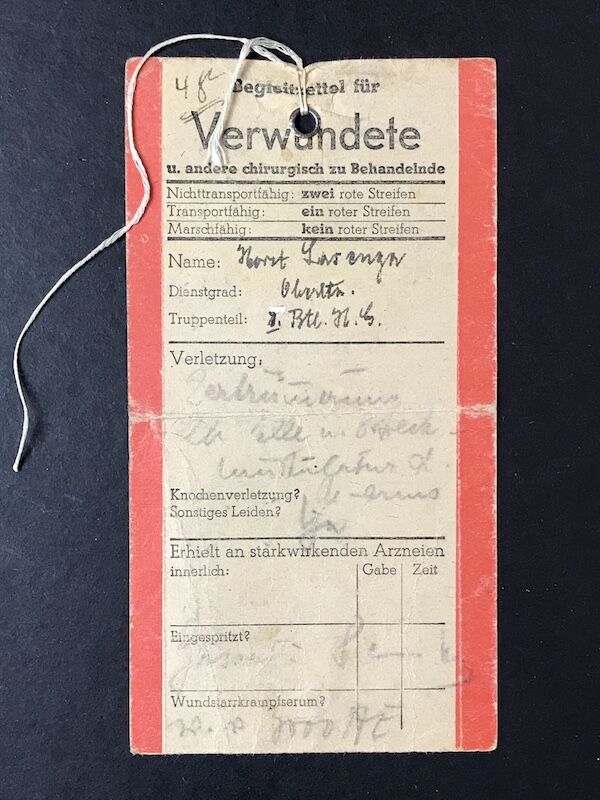 Begleitzettel für
Verwundete
u. andere chirurgisch zu Behandelnde
Nichttransportfähig: zwei rote Streifen
Transportfähig: ein roter Streifen
Marschfähig: kein roter Streifen
Name: Horst
Dienstgrad: Oberltn.
Truppenteil: Btl. H. G.
Verletzung:
Zertrümmerung
Elle u.
Knochenverletzung?
Sonstiges Leiden? ja
Erhielt an starkwirkenden Arzneien
innerlich: Gabe Zeit
Eingespritzt?
Wundstarrkrampfserum?
3000 AE